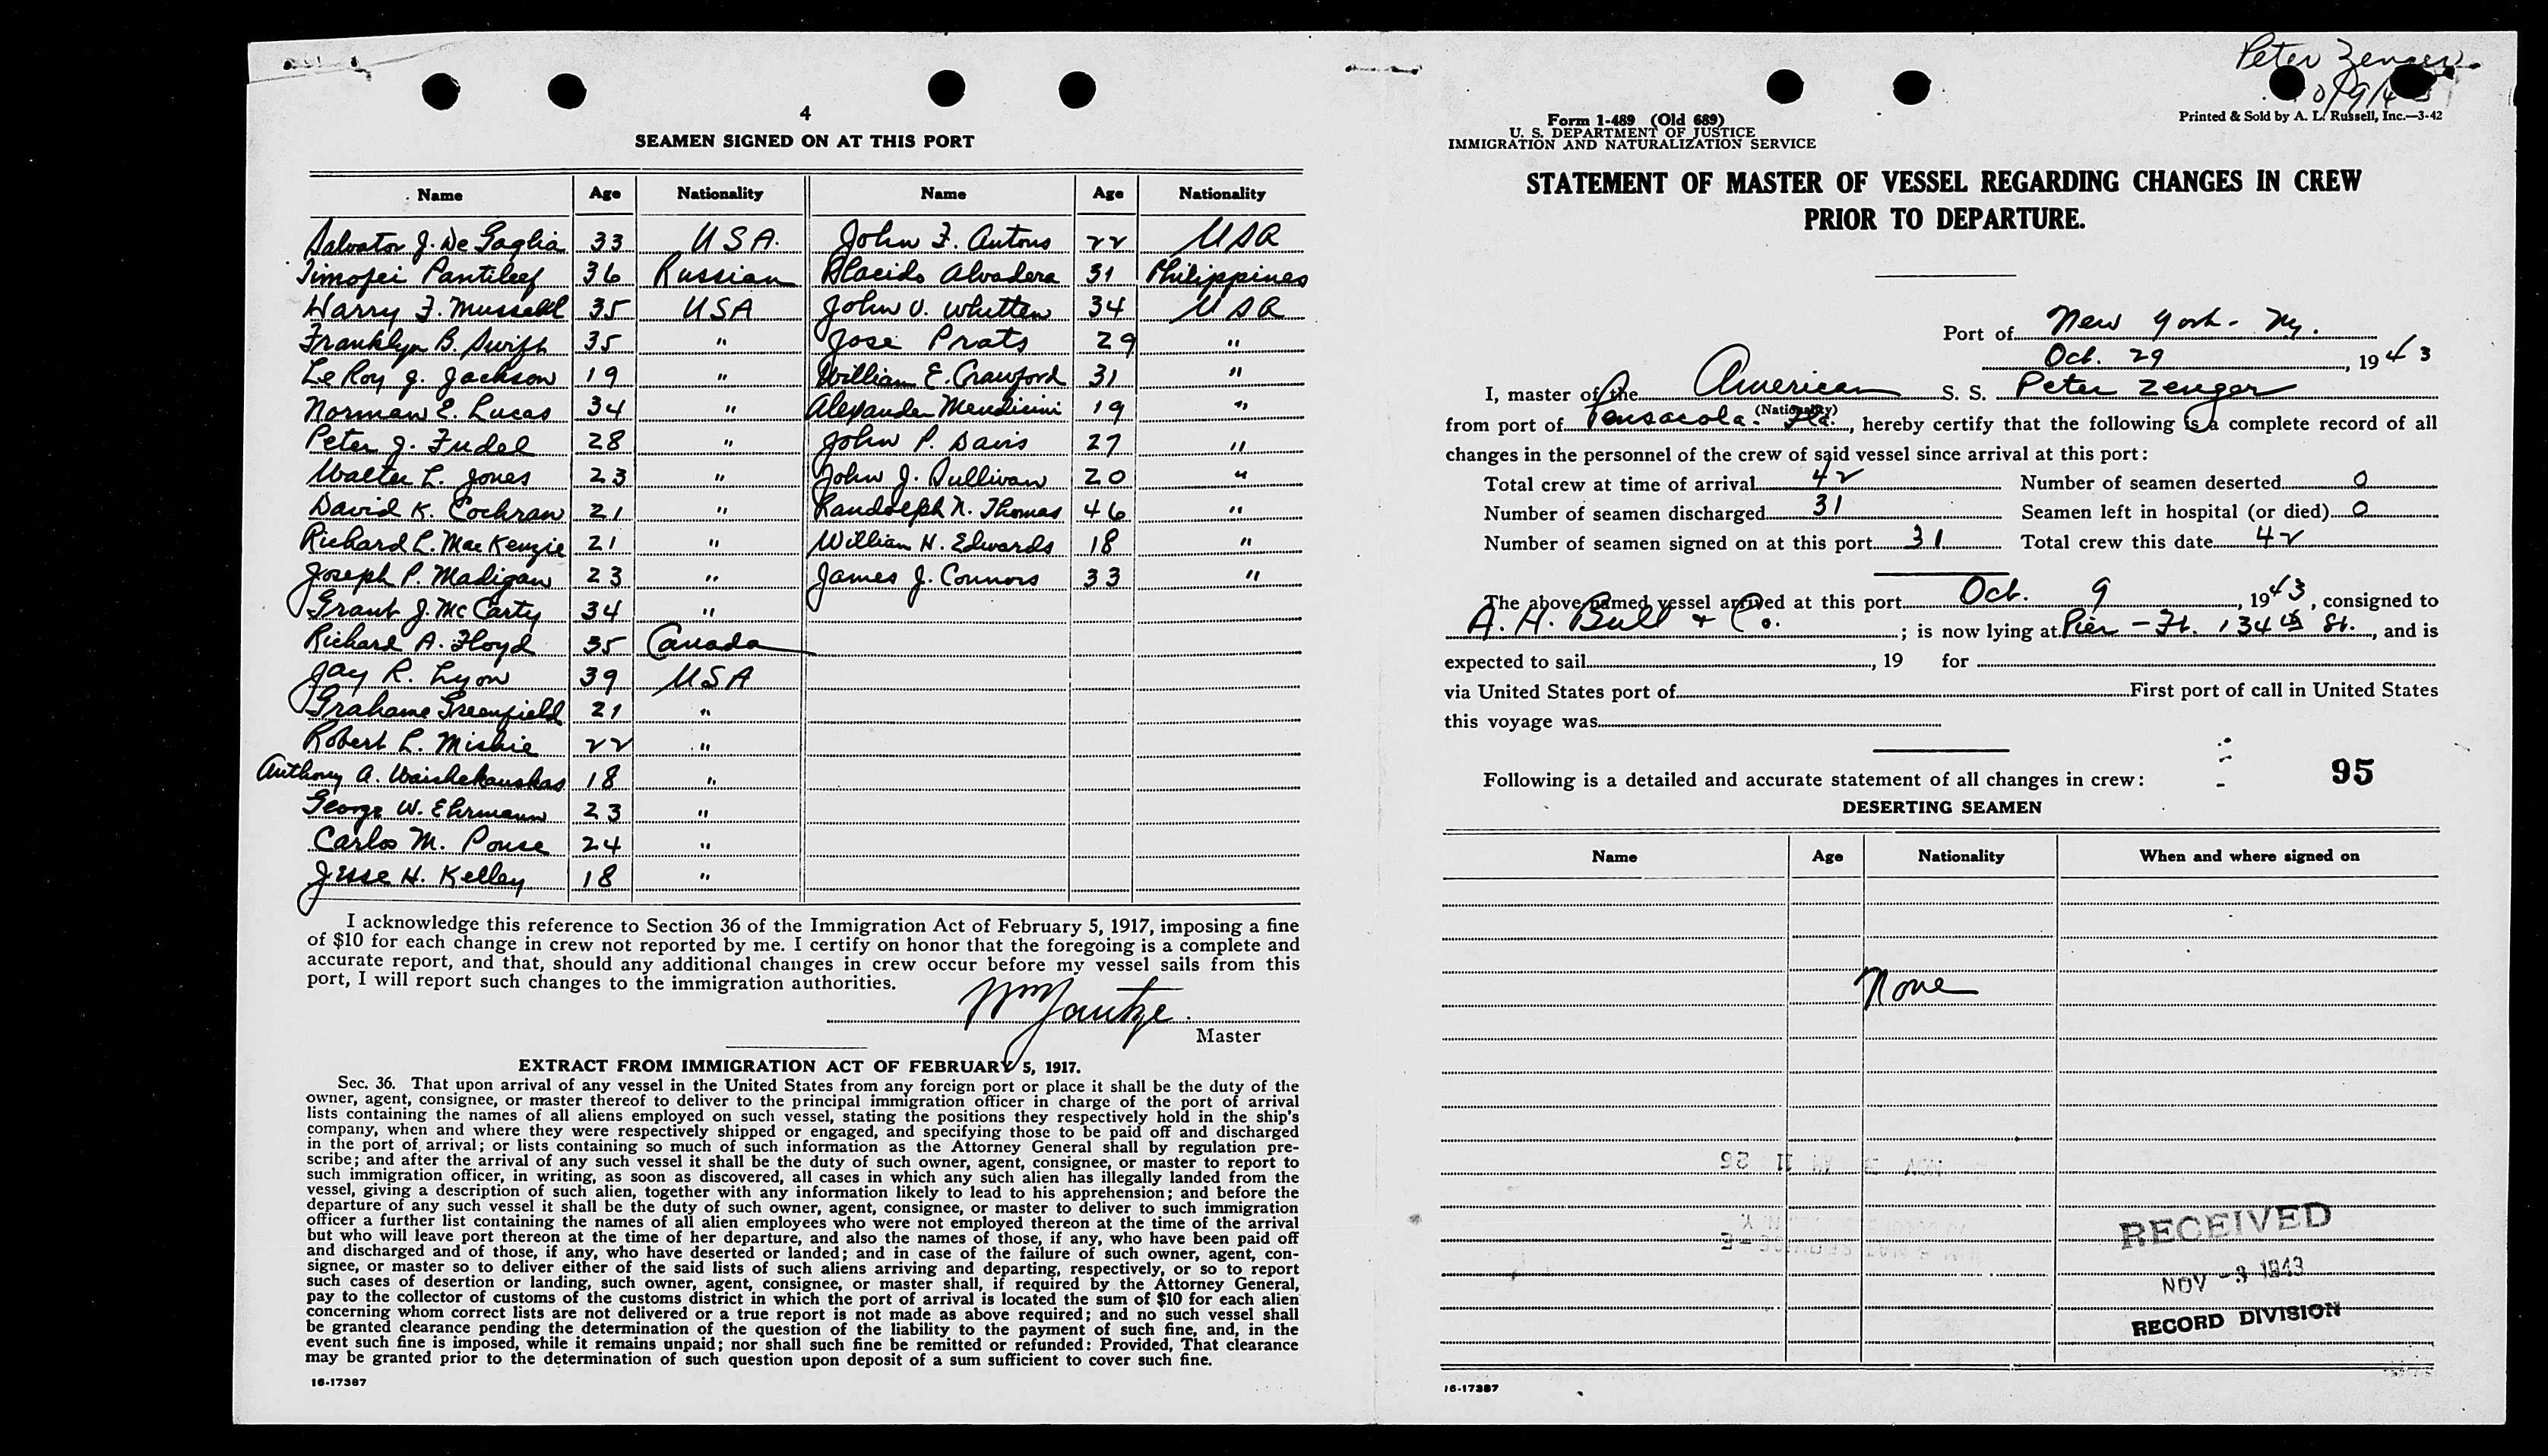 4
SEAMEN SIGNED ON AT THIS PORT
Name Age Nationality Name Age Nationality
Salvator J. De Gaglia 33 USA. John F. Autons 22 USA
Timofei Pantileef 36 Russian Placido Alvadera 31 Philippines
Harry F. Mussell 35 USA John V. Whitten 34 USA
Franklyn B. Swift 35 " Jose Prats 29 "
LeRoy J. Jackson 19 " William E. Crawford 31 "
Norman E. Lucas 34 " Alexander Mendicini 19 "
Peter J. Fudel 28 " John P. Davis 27 "
Walter L. Jones 23 " John J. Sullivan 20 "
David K. Cochran 21 " Randolph N. Thomas 46 "
Richard L. MacKenzie 21 " William H. Edwards 18 "
Joseph P. Madigan 23 " James J. Connors 33 "
Grant J. McCarty 34 "
Richard A. Floyd 35 Canada
Jay R. Lyon 39 USA
Grahame Greenfield 21 "
Robert L. Mishie 22 "
Anthony A. Waishekauskas 18 "
George W. Ehrmann 23 "
Carlos M. Pouse 24 "
Jesse H. Kelley 18 "
I acknowledge this reference to Section 36 of the Immigration Act of February 5, 1917, imposing a fine
of $10 for each change in crew not reported by me. I certify on honor that the foregoing is a complete and
accurate report, and that, should any additional changes in crew occur before my vessel sails from this
port, I will report such changes to the immigration authorities.
Master
EXTRACT FROM IMMIGRATION ACT OF FEBRUARY 5, 1917.
Sec. 36. That upon arrival of any vessel in the United States from any foreign port or place it shall be the duty of the
owner, agent, consignee, or master thereof to deliver to the principal immigration officer in charge of the port of arrival
lists containing the names of all aliens employed on such vessel, stating the positions they respectively hold in the ship's
company, when and where they were respectively shipped or engaged, and specifying those to be paid off and discharged
in the port of arrival; or lists containing so much of such information as the Attorney General shall by regulation pre-
scribe; and after the arrival of any such vessel it shall be the duty of such owner, agent, consignee, or master to report to
such immigration officer, in writing, as soon as discovered, all cases in which any such alien has illegally landed from the
vessel, giving a description of such alien, together with any information likely to lead to his apprehension; and before the
departure of any such vessel it shall be the duty of such owner, agent, consignee, or master to deliver to such immigration
officer a further list containing the names of all alien employees who were not employed thereon at the time of the arrival
but who will leave port thereon at the time of her departure, and also the names of those, if any, who have been paid off
and discharged and of those, if any, who have deserted or landed; and in case of the failure of such owner, agent, con-
signee, or master so to deliver either of the said lists of such aliens arriving and departing, respectively, or so to report
such cases of desertion or landing, such owner, agent, consignee, or master shall, if required by the Attorney General,
pay to the collector of customs of the customs district in which the port of arrival is located the sum of $10 for each alien
concerning whom correct lists are not delivered or a true report is not made as above required; and no such vessel shall
be granted clearance pending the determination of the question of the liability to the payment of such fine, and, in the
event such fine is imposed, while it remains unpaid; nor shall such fine be remitted or refunded: Provided, That clearance
may be granted prior to the determination of such question upon deposit of a sum sufficient to cover such fine.
16-17387
Peter Zenger
Form 1-489 (Old 689)
U. S. DEPARTMENT OF JUSTICE
IMMIGRATION AND NATURALIZATION SERVICE
Printed & Sold by A. L. Russell, Inc.—3-42
STATEMENT OF MASTER OF VESSEL REGARDING CHANGES IN CREW
PRIOR TO DEPARTURE.
Port of New York - Ny.
Oct. 29, 1943
I, master of the American S. S. Peter Zenger
(Nationality)
from port of Pensacola. Fla., hereby certify that the following is a complete record of all
changes in the personnel of the crew of said vessel since arrival at this port:
Total crew at time of arrival 42 Number of seamen deserted 0
Number of seamen discharged 31 Seamen left in hospital (or died) 0
Number of seamen signed on at this port 31 Total crew this date 42
The above-named vessel arrived at this port Oct. 9, 1943, consigned to
A. H. Bull & Co.; is now lying at Pier - Ft. 134th St., and is
expected to sail, 19 for
via United States port of First port of call in United States
this voyage was
Following is a detailed and accurate statement of all changes in crew: 95
DESERTING SEAMEN
Name Age Nationality When and where signed on
None
RECEIVED
NOV -3 1943
RECORD DIVISION
16-17387